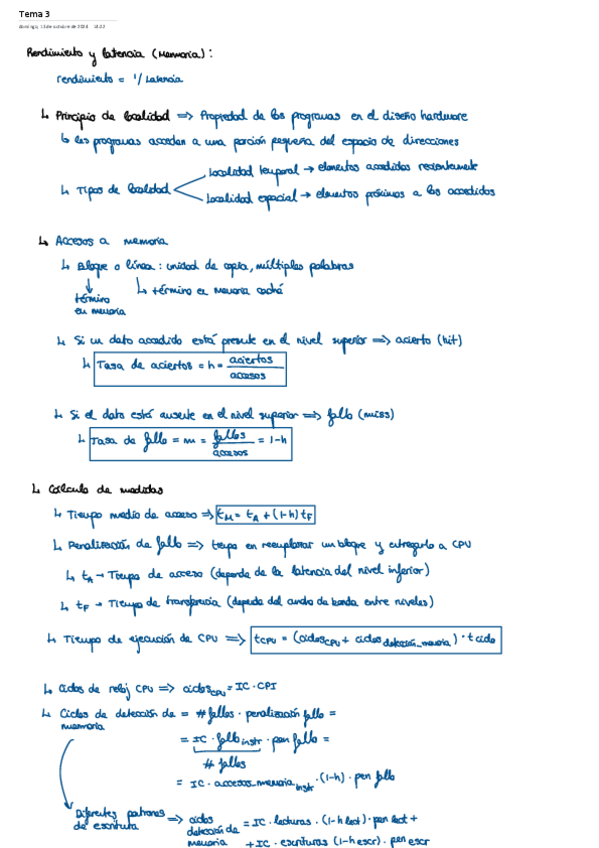 Tema 3
domingo, 13 de octubre de 2024
Rendimiento y latencia (Memoria):
rendimiento = 1/Latencia
↳ Principio de localidad => Propiedad de los programas en el diseño hardware
↳ los programas acceden a una porción pequeña del espacio de direcciones
↳ Tipos de localidad
localidad temporal → elementos accedidos recientemente
localidad espacial → elementos próximos a los accedidos
↳ Accesos a memoria
↳ Bloque o línea: unidad de copia, múltiples palabras
↓ término en memoria
↳ término en Memoria caché
↳ Si un dato accedido está presente en el nivel superior => acierto (hit)
↳ Tasa de aciertos = h = aciertos/accesos
↳ Si el dato está ausente en el nivel superior => fallo (miss)
↳ Tasa de fallo = m = fallos/accesos = 1-h
↳ Cálculo de medidas
↳ Tiempo medio de acceso => tM = tA + (1-h) tF
↳ Penalización de fallo => tiempo en reemplazar un bloque y entregarlo a CPU
↳ tA → Tiempo de acceso (depende de la latencia del nivel inferior)
↳ tF → Tiempo de transferencia (depende del ancho de banda entre niveles)
↳ Tiempo de ejecución de CPU => tCPU = (ciclosCPU + ciclos detección_memoria) · tciclo
↳ Ciclos de reloj CPU => ciclosCPU = IC · CPI
↳ Ciclos de detección de memoria = #fallos · penalización fallo =
= IC · fallo instr · pen fallo =
# fallos
= IC · accesos_memoria instr · (1-h) · pen fallo
Diferentes patrones de escritura => ciclos detección de memoria = IC · lecturas · (1-h lect) · pen lect +
+ IC · escrituras (1-h escr) · pen escr